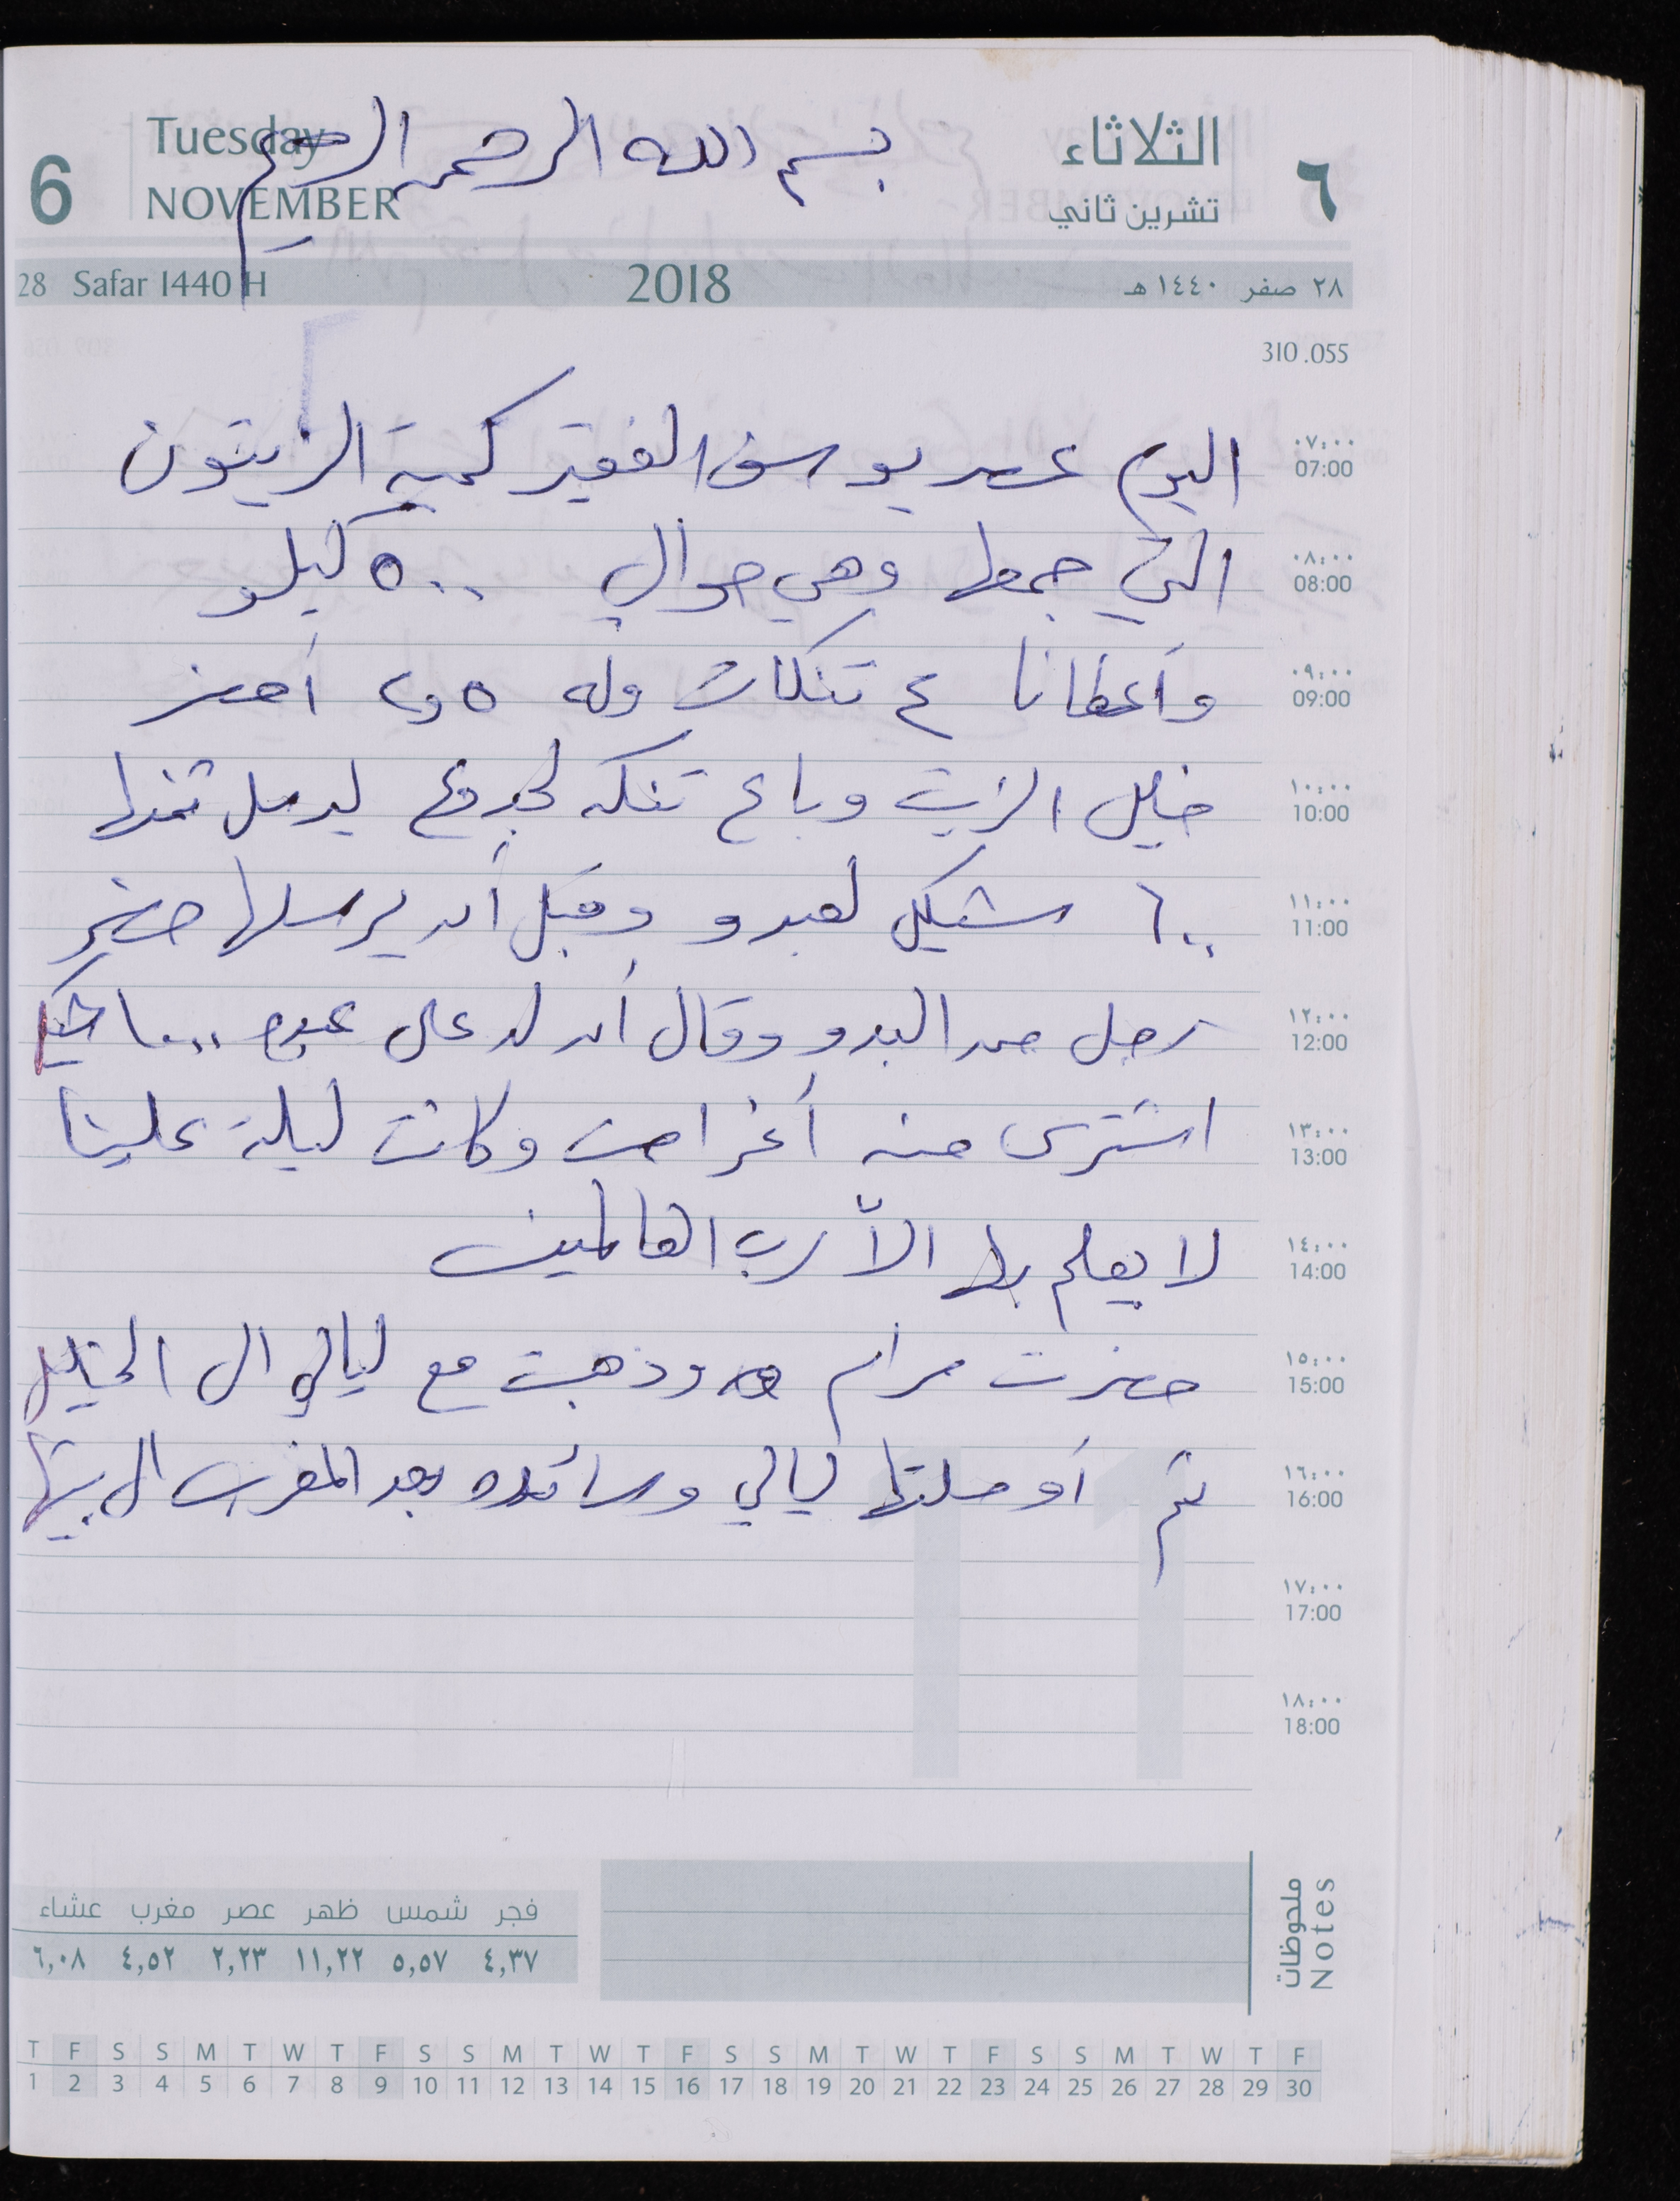 6
Tuesday
NOVEMBER
بسم الله الرحمن الرحيم
الثلاثاء
تشرين ثاني
٦
28 Safar 1440 H
2018
٢٨ صفر ١٤٤٠ هـ
310 .055
٠٧:٠٠
07:00
اليوم عصر يوسف الفقير كمية الزيتون
٠٨:٠٠
08:00
التي جمعها وهي حوالي ٥٠٠ كيلو
٠٩:٠٠
09:00
وأعطانا ٤ تنكات وله ٥ و أحضر
١٠:٠٠
10:00
خليل الزيت وباع تنكه ليرسل ثمنها
١١:٠٠
11:00
٦٠٠ شيكل لعبدو وقبل أن يرسلها حضر
١٢:٠٠
12:00
رجل من البدو وقال أن له على عبدو ١٠٠٠ شيكل
١٣:٠٠
13:00
اشترى منه أغراض وكانت ليلة علينا
١٤:٠٠
14:00
لا يعلم بها الاّ رب العالمين
١٥:٠٠
15:00
حضرت مرام وذهبت مع ليالي الى الخليل
١٦:٠٠
16:00
ثم أوصلتها ليالي وسائده بعد المغرب الى بيتها
١٧:٠٠
17:00
١٨:٠٠
18:00
11
ملحوظات
Notes
فجر شمس ظهر عصر مغرب عشاء
٤,٣٧ ٥,٥٧ ١١,٢٢ ٢,٢٣ ٤,٥٢ ٦,٠٨
T F S S M T W T F S S M T W T F S S M T W T F S S M T W T F
1 2 3 4 5 6 7 8 9 10 11 12 13 14 15 16 17 18 19 20 21 22 23 24 25 26 27 28 29 30